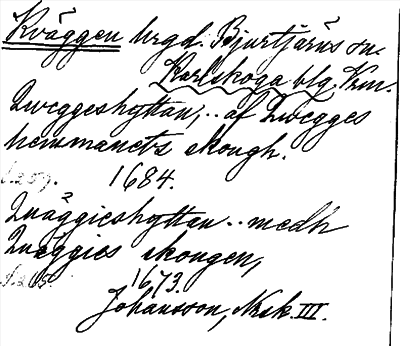 Kväggen hrgd. Bjurtjärns sn.
Karlskoga blg. Vrm.
Qweggeshyttan, .. af Qwegges
hemmanets skough.
s. 259. 1684.
Quäggieshyttan .. medh
Quäggies skougen,
s. 265. 1673.
Johansson, Nksk. III.